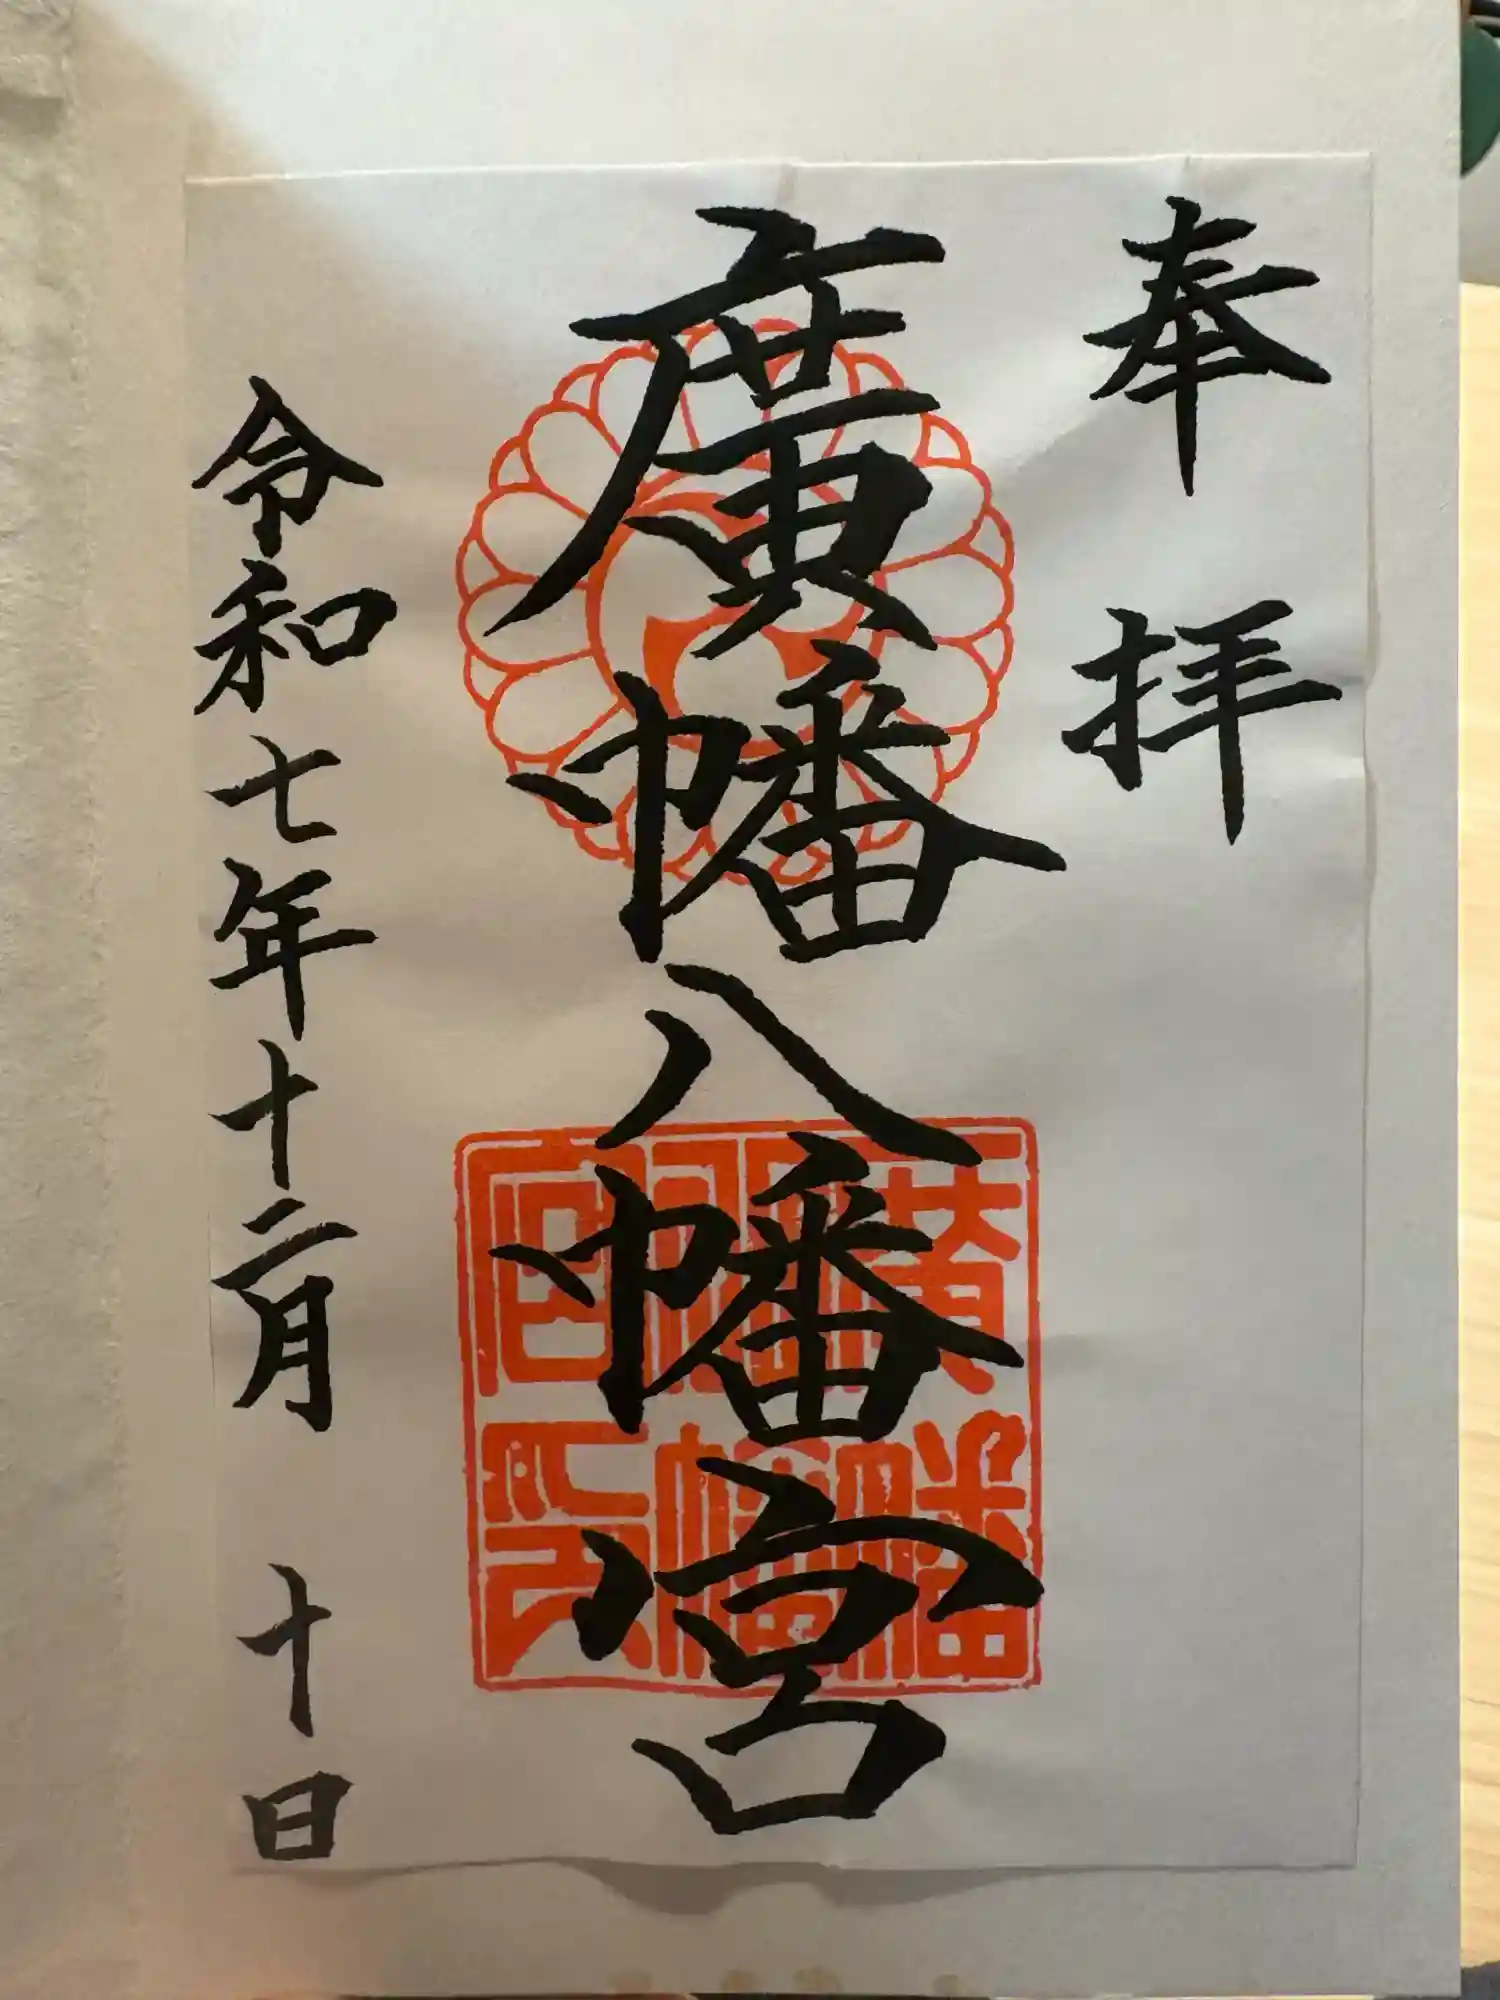 奉拝
廣幡八幡宮
令和七年十二月十日